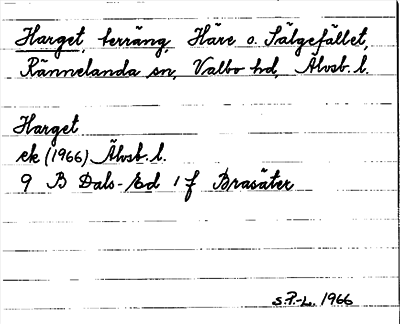 Harget, terräng, Häre o. Sälgefället,
Rännelanda sn, Valbo hd, Älvsb. l.
Harget
ek (1966) Älvsb. l.
9 B Dals-Ed 1 f Brasäter
S.P.-L. 1966